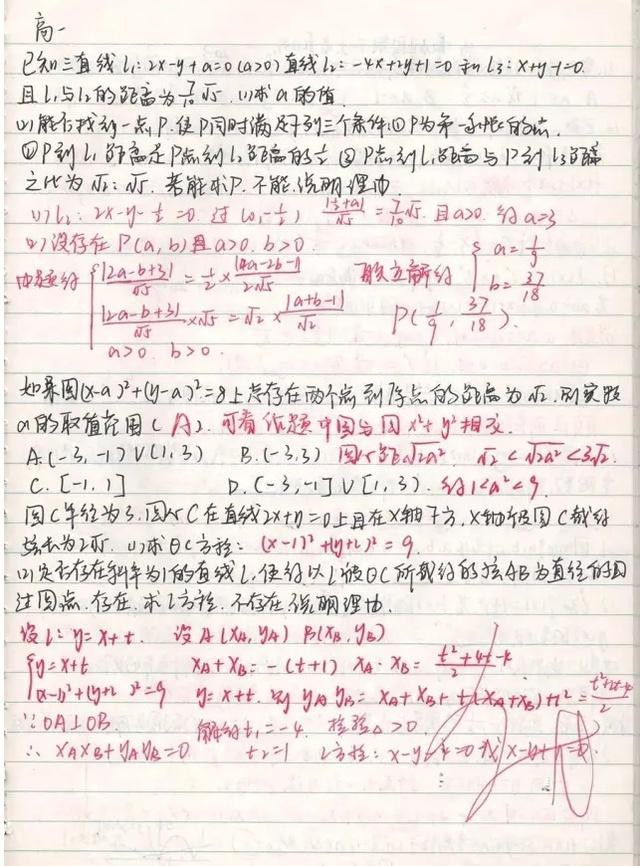 高一
已知三直线l₁: 2x-y+a=0 (a>0) 直线l₂: -4x+2y+1=0 和 l₃: x+y-1=0.
且l₁与l₂的距离为7/10√5. (1)求a的值.
(2)能否找到一点P. 使P同时满足下列三个条件: ①P为第一象限的点.
②P到l₁距离是P点到l₂距离的½ ③P点到l₁距离与P到l₃距离
之比为√2:√5. 若能求P. 不能. 说明理由
(1) l₂: 2x-y-½=0. 过(0,½) |½+a|/√5 = 7/10√5. 且a>0. 得a=3
(2)设存在P(a,b)且a>0. b>0.
由题得 { |2a-b+3|/√5 = ½×|4a-2b-1|/2√5 联立解得 { a=1/9
|2a-b+3|/√5 ×√5 = √2×|a+b-1|/√2 b=37/18
a>0 b>0. P(1/9, 37/18).
如果圆(x-a)²+(y-a)²=8上总存在两个点到原点的距离为√2. 则实数
a的取值范围( A ). 可看作题中圆与圆x²+y²相交.
A.(-3,-1)∪(1,3) B.(-3,3) 圆心距√2a². √2<√2a²<3√2.
C.[-1,1] D.(-3,-1]∪[1,3). 得1<a²<9.
圆C半径为3. 圆心C在直线2x+y=0上且在x轴下方, x轴被圆C截得
弦长为2√5. (1)求⊙C方程: (x-1)²+(y+2)²=9.
(2)是否存在斜率为1的直线l. 使得以l被⊙C所截得的弦AB为直径的圆
过原点. 存在. 求l方程. 不存在. 说明理由.
设l: y=x+t. 设A(xA,yA) B(xB,yB)
{ y=x+t xA+xB=-(t+1) xA·xB=(t²+4t-4)/2
(x-1)²+(y+2)²=9 y=x+t. 则 yAyB=xAxB+t(xA+xB)+t²=(t²+2t-4)/2
∵OA⊥OB 解得t₁=-4. 检验△>0
∴xAxB+yAyB=0 t₂=1 l方程: x-y-4=0或x-y+1=0.